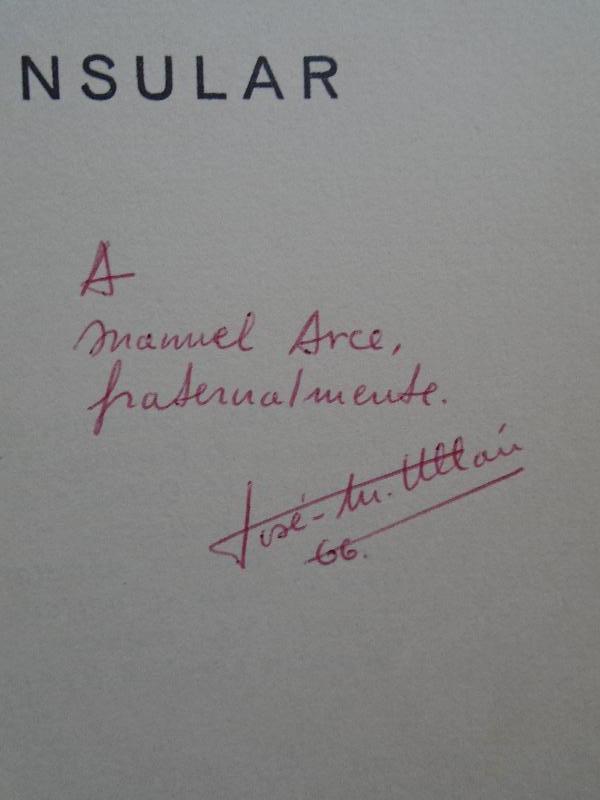 NSULAR
A
Manuel Arce,
fraternalmente.
José-M. Ullán
66.